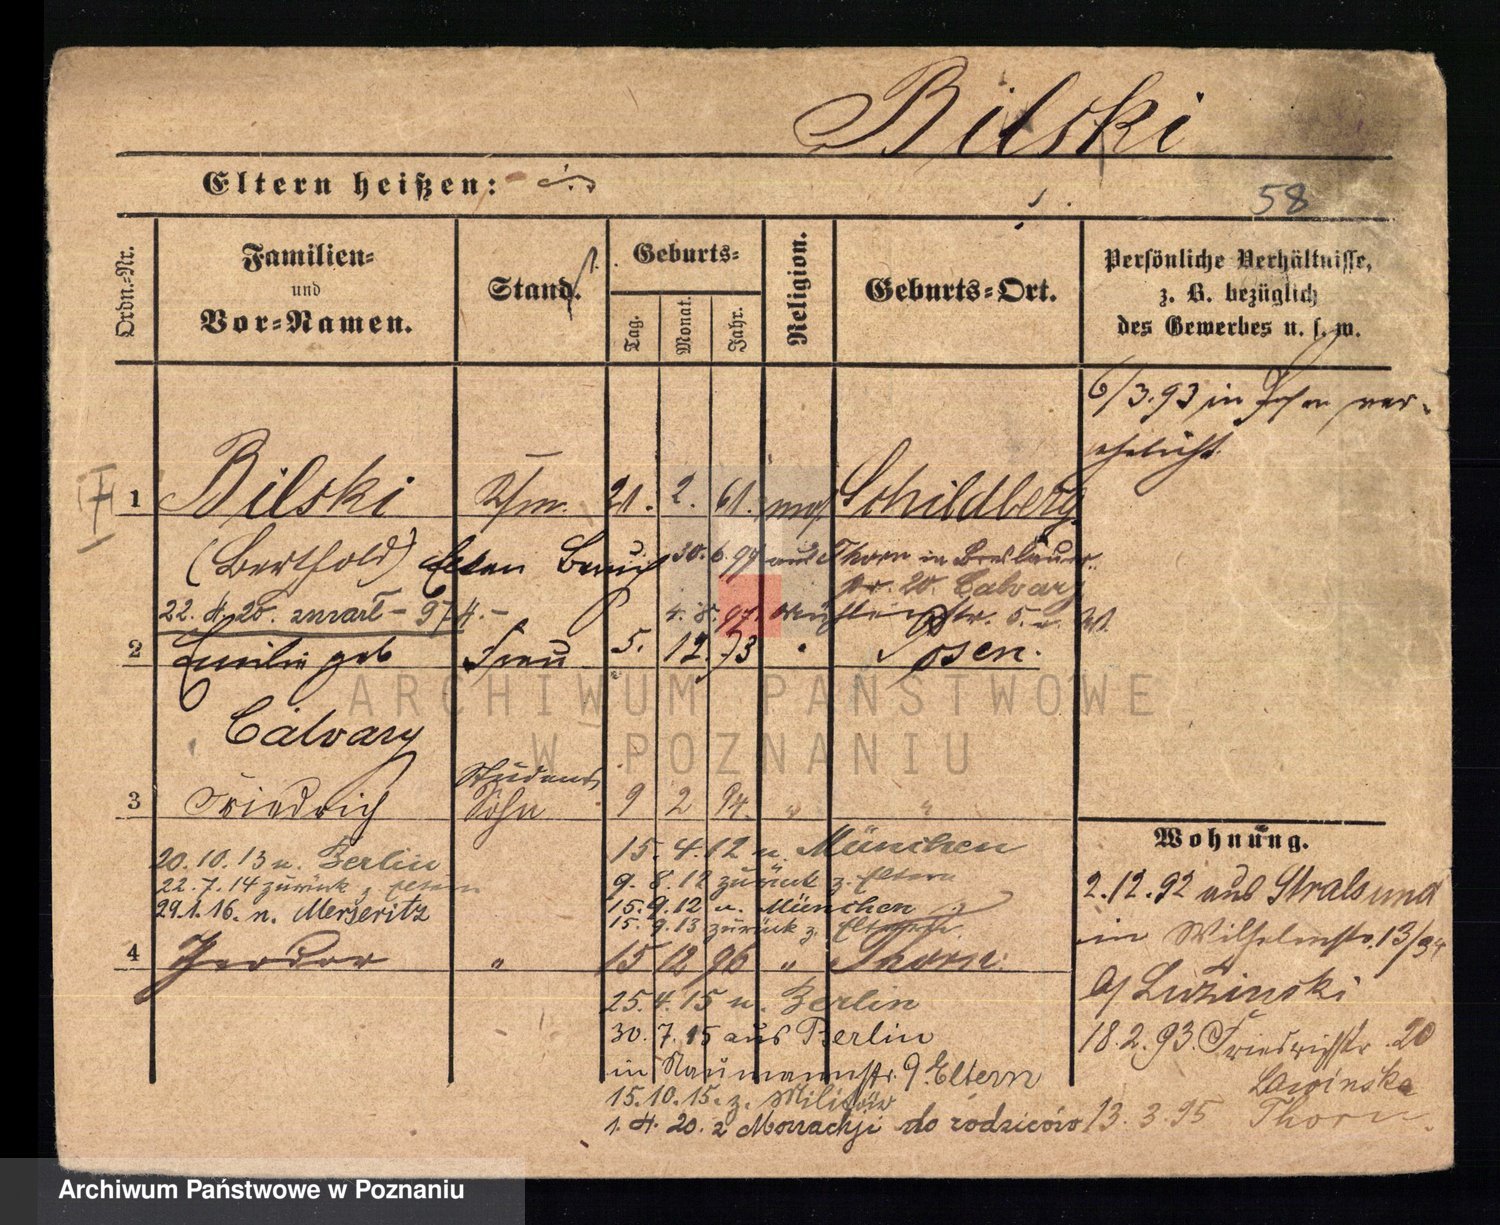 Bilski
Eltern heißen:
58
Ordn.-Nr.
Familien-
und
Vor-Namen.
Stand.
Geburts-
Tag.
Monat.
Jahr.
Religion.
Geburts-Ort.
Persönliche Verhältnisse,
z. B. bezüglich
des Gewerbes u. s. w.
6/3.93 in Posen ver-
ehelicht
1 Bilski Kfm. 21. 2. 61. mos. Schildberg
(Berthold) 30. 6. 97 aus Thorn in Breslauer
Nr. 20. Calvary
22. 4. 20. zmarł - 974. - 4. 8. 97. 5.
2 Emilie geb Frau 5. 12. 73 " Posen.
Calvary
Student
3 Friedrich Sohn 9 2 94. " "
20. 10. 13 n. Berlin
22. 7. 14 zurück z. Eltern
29. 1. 16. n. Meseritz
15. 4. 12 n. München
9. 8. 12 zurück z. Eltern
15. 9. 12 n. München
15. 9. 13 zurück z. Eltern
4 Theodor " 15 12 96 " Thorn.
25. 4. 15 n. Berlin
30. 7. 15 aus Berlin
in Naumannstr. 9. Eltern
15. 10. 15. z. Militär
1. 4. 20. z do rodziców
Wohnung.
2. 12. 92 aus Stralsund
in Wilhelmstr. 13/
18. 2. 93. Friedrichstr. 20
13. 3. 95 Thorn.
ARCHIWUM PAŃSTWOWE
W POZNANIU
Archiwum Państwowe w Poznaniu